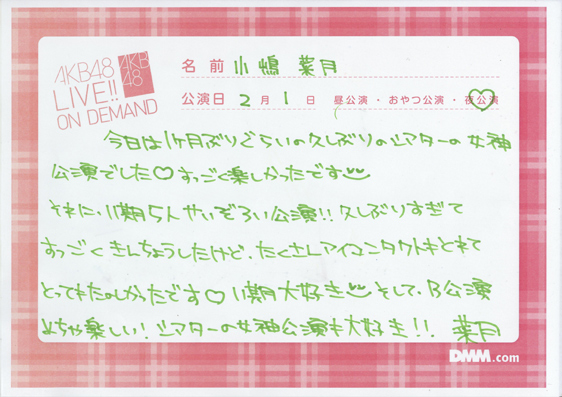 AKB48
LIVE!!
ON DEMAND
AKB
48
名前 小嶋 菜月
公演日 2月1日 昼公演・おやつ公演・夜公演
今日は1ヶ月ぶりぐらいの久しぶりのシアターの女神
公演でした♡すっごく楽しかったです
それに、11期5人せいぞろい公演!!久しぶりすぎて
すっごくきんちょうしたけど、たくさんアイコンタクトもとれて
とってもたのしかったです♡11期大好き そして、B公演
めちゃ楽しい!シアターの女神公演も大好き!! 菜月
DMM.com